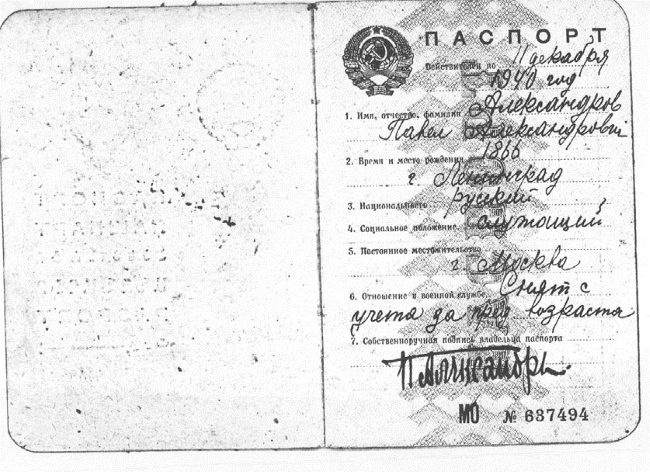 ПАСПОРТ
Действителен по 11 декабря
1940 год
1. Имя, отчество, фамилия Александров
Павел Александрович
2. Время и место рождения 1866
г. Ленинград
3. Национальность русский
4. Социальное положение служащий
5. Постоянное местожительство
г. Москва
6. Отношение к военной службе Снят с
учета за пред. возраста
7. Собственноручная подпись владельца паспорта
П Александров
МО № 637494